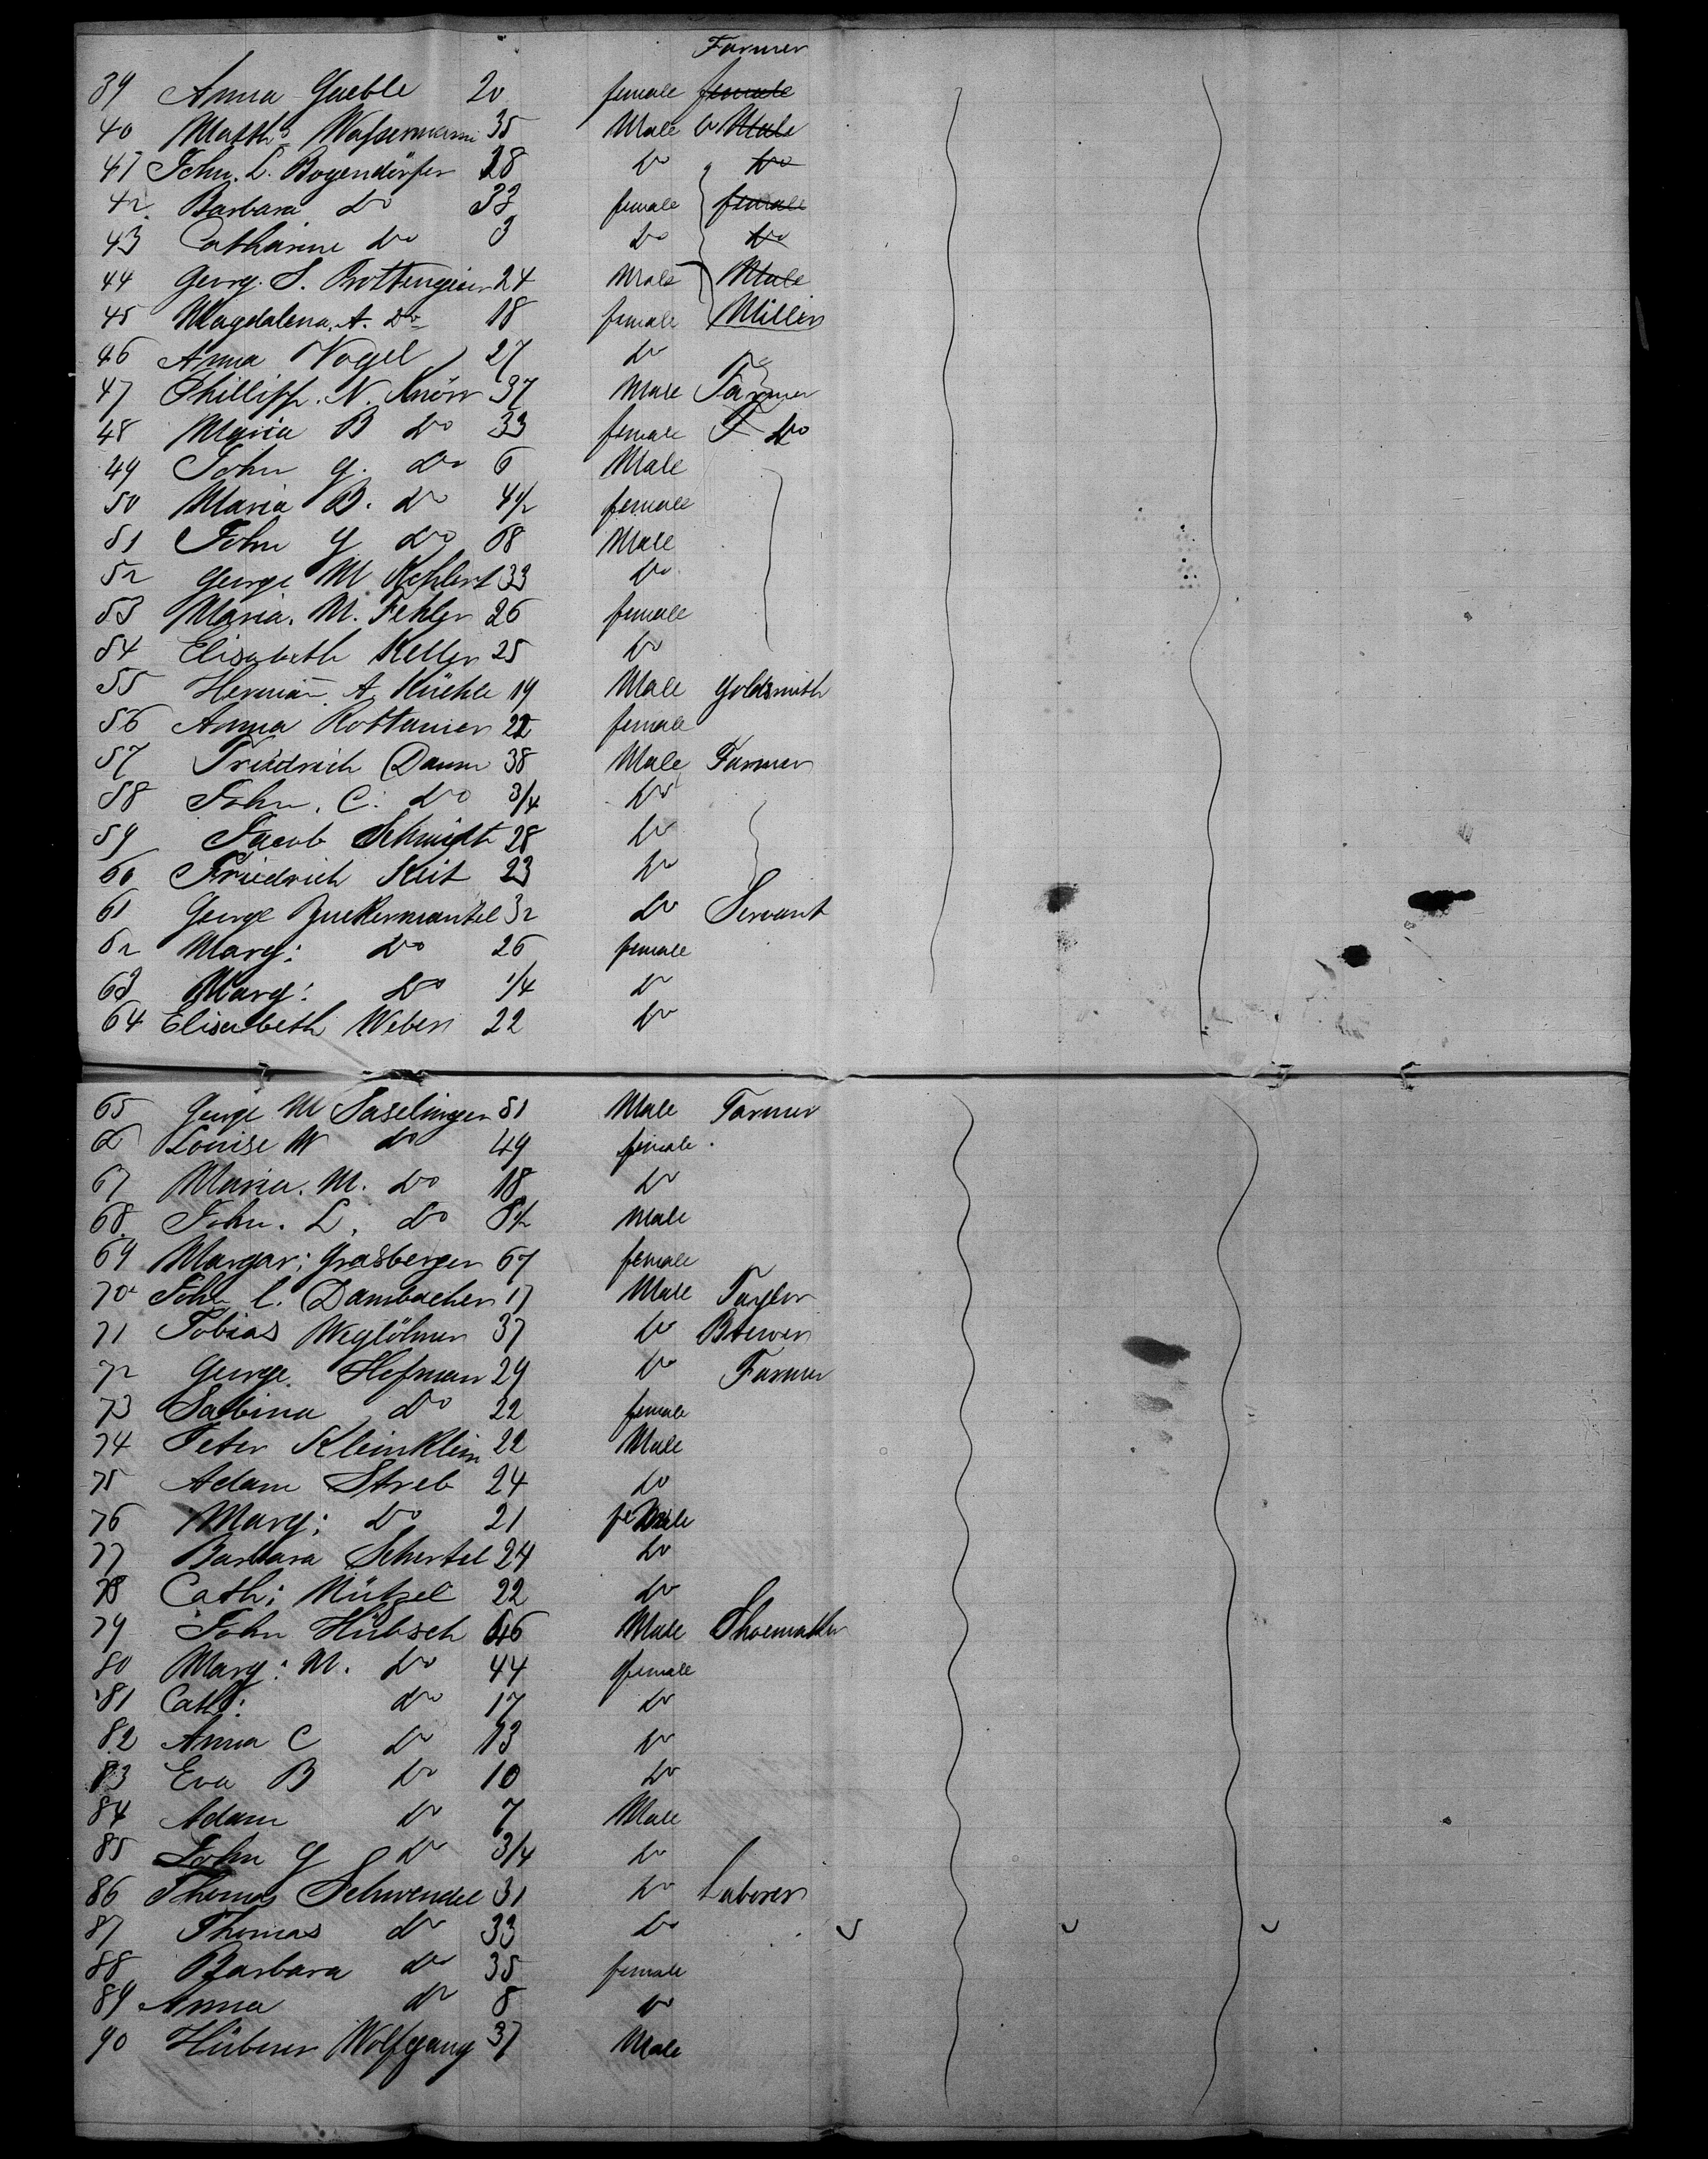 Farmer
39 Anna Gueble 20 female female
40 Matths Wassermann 35 Male Do Male
41 John. L. Bogendörfer 28 Do Do
42. Barbara Do 33 female female
43 Catharine Do 3 Do Do
44 Georg. S. Rottengeier 24 Male Male
45 Magdalena. A. Do 18 female Miller
46 Anna Vogel 27 Do
47 Phillipp. N. Knörr 37 Male Farmer
48 Maria B Do 33 female F Do
49 John G. Do 6 Male
50 Maria B. Do 4½ female
51 John G Do 68 Male
52 George M Kohlert 33 Do
53 Maria. M. Fehler 26 female
54 Elisabeth Keller 25 Do
55 Herman A. Kuehle 19 Male Goldsmith
56 Anna Rottamer 22 female
57 Friedrich Daum 38 Male Farmer
58 John. C. Do 3/4 Do
59 Jacob Schmidt 28 Do
60 Friedrich Keit 23 Do
61 George Zuckermantel 32 Do Servant
62 Marg: Do 26 female
63 Marg: Do 1/4 Do
64 Elisabeth Weber 22 Do
65 George M Saselinger 51 Male Farmer
66 Louise M Do 49 female
67 Maria. M. Do 18 Do
68. John. L. Do 8½ Male
69 Margar: Grasberger 67 female
70 John C. Dambacher 17 Male Taylor
71 Tobias Weglöhner 37 Do Brewer
72 George Hofman 29 Do Farmer
73 Sabina Do 22 female
74 Peter Kleinklein 22 Male
75 Adam Streb 24 Do
76 Marg: Do 21 feMale
77 Barbara Schertel 24 Do
78 Cath: Nützel 22 Do
79 John Hübsch 46 Male Shoemaker
80 Marg: M. Do 44 female
81 Cath: Do 17 Do
82 Anna C Do 13 Do
83 Eva B Do 10 Do
84 Adam Do 7 Male
85 John G Do 3/4 Do
86 Thomas Schwendel 31 Do Laborer
87 Thomas Do 33 Do
88 Barbara Do 35 female
89 Anna Do 8 Do
90 Hübner Wolfgang 37 Male